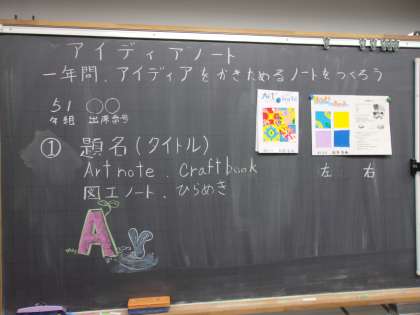 アイディアノート
一年間、アイディアをかきためるノートをつくろう
51 〇〇
年組 出席番号
① 題名(タイトル)
Art note . Craft book
図工ノート . ひらめき
左 右
A